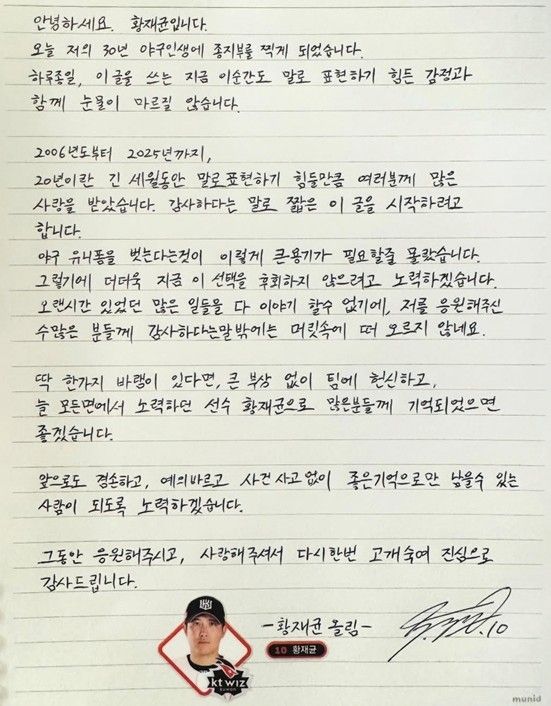 안녕하세요. 황재균입니다.
오늘 저의 30년 야구인생에 종지부를 찍게 되었습니다.
하루종일, 이 글을 쓰는 지금 이순간도 말로 표현하기 힘든 감정과
함께 눈물이 마르질 않습니다.
2006년도부터 2025년까지,
20년이란 긴 세월동안 말로표현하기 힘들만큼 여러분께 많은
사랑을 받았습니다. 감사하다는 말로 짧은 이 글을 시작하려고
합니다.
야구 유니폼을 벗는다는것이 이렇게 큰용기가 필요할줄 몰랐습니다.
그렇기에 더더욱 지금 이 선택을 후회하지 않으려고 노력하겠습니다.
오랜시간 있었던 많은 일들을 다 이야기 할수 없기에, 저를 응원해주신
수많은 분들께 감사하다는말 밖에는 머릿속에 떠 오르지 않네요.
딱 한가지 바램이 있다면, 큰 부상 없이 팀에 헌신하고,
늘 모든면에서 노력하던 선수 황재균으로 많은분들께 기억되었으면
좋겠습니다.
앞으로도 겸손하고, 예의바르고 사건 사고 없이 좋은기억으로만 남을수 있는
사람이 되도록 노력하겠습니다.
그동안 응원해주시고, 사랑해주셔서 다시한번 고개숙여 진심으로
감사드립니다.
-황재균 올림-
10 황재균
10
kt wiz
SUWON
munid